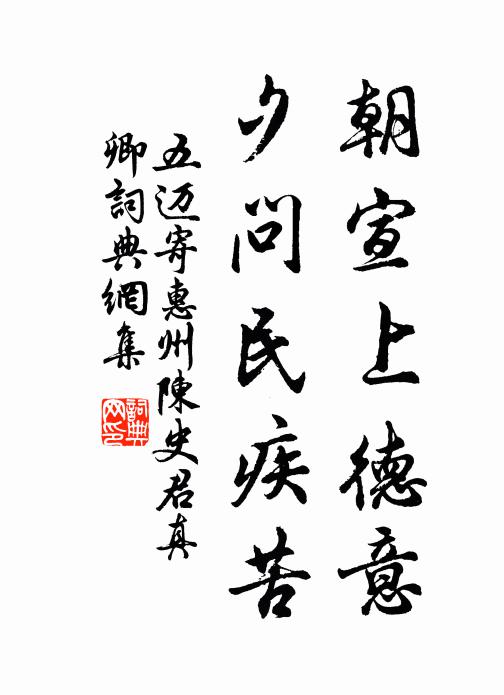 朝宣上德意
夕問民疾苦
五迈寄惠州陳史君真
卿詞典網集
詞典
网印